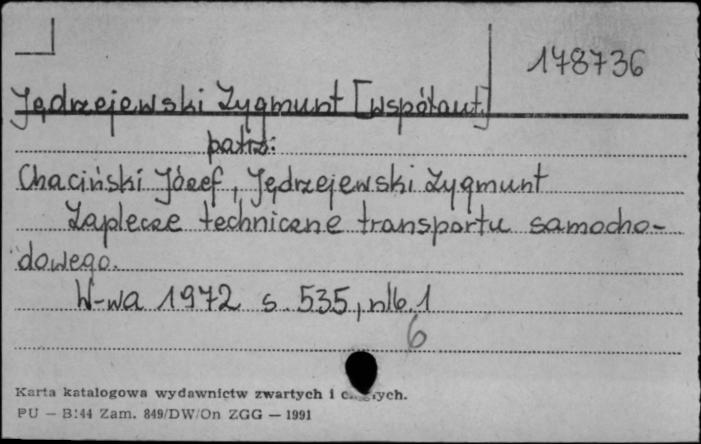 178736
Jędrzejewski Zygmunt [współaut.]
patrz:
Chaciński Józef, Jędrzejewski Zygmunt
Zaplecze techniczne transportu samocho-
dowego.
W-wa 1972 s. 535, nlb. 1
6
Karta katalogowa wydawnictw zwartych i
PU — B:44 Zam. 849/DW/On ZGG — 1991